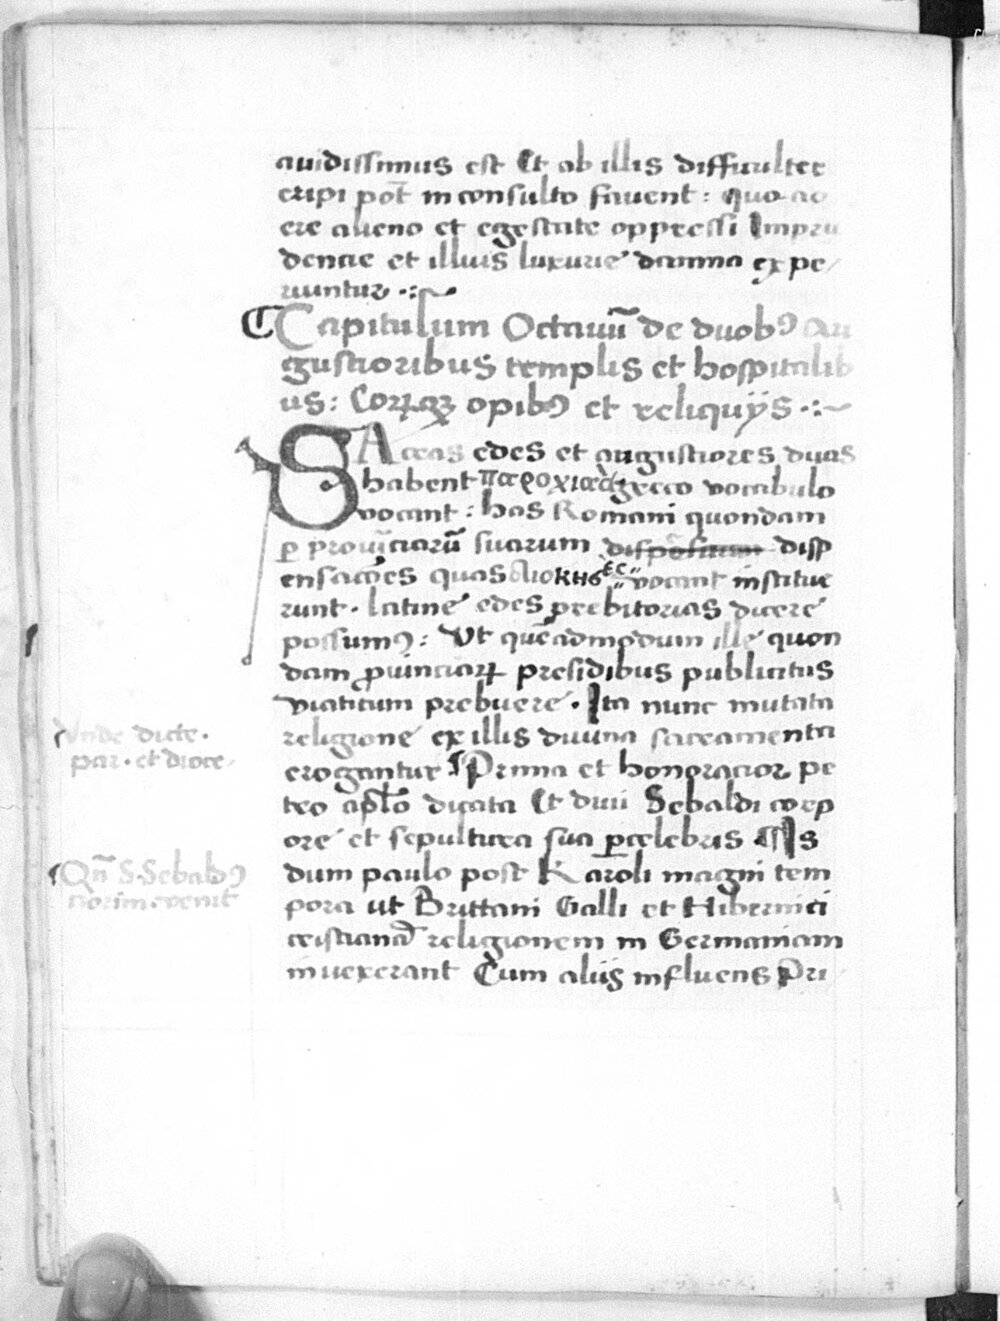 auidissimus est Et ab illis difficulter
eripi pot̄ inconsulto fauent : Quo ac
ere alieno et egestate oppressi Impru
dencie et illuuis luxurie damna expe/
riuntur ·:~
Capitulum Octauū de duobꝰ Au
gustioribus templis et hospitalib
us: Corꝝqꝫ opibꝰ et reliquijs ·:~
SAcras edes et augustiores duas
habent παροχιας greco vocabulo
vocant : has Romani quondam
ꝑ prouīciarū suarum disp
ensacōes quas vocant institue
runt · latine edes prebitorias dicere
possumꝰ : Ut quēadmodum ille quon
dam ꝓuinciaꝝ presidibus publicitus
viaticum prebuere · Ita nunc mutata
religione ex illis diuina sacramenta
erogantur Prima et honoracior pe
tro apl̄o dicata Et diui Sebaldi corp
ore et sepultura sua ꝑcelebris Is
dum paulo post Karoli magni tem
pora ut Brittani Galli et Hibernici
cristianā religionem in Germaniam
inuexerant Cum aliis influens Pri
Vnde dicte ·
par · et dioce
Qn̄ S · Sebaldꝰ
norim · venit